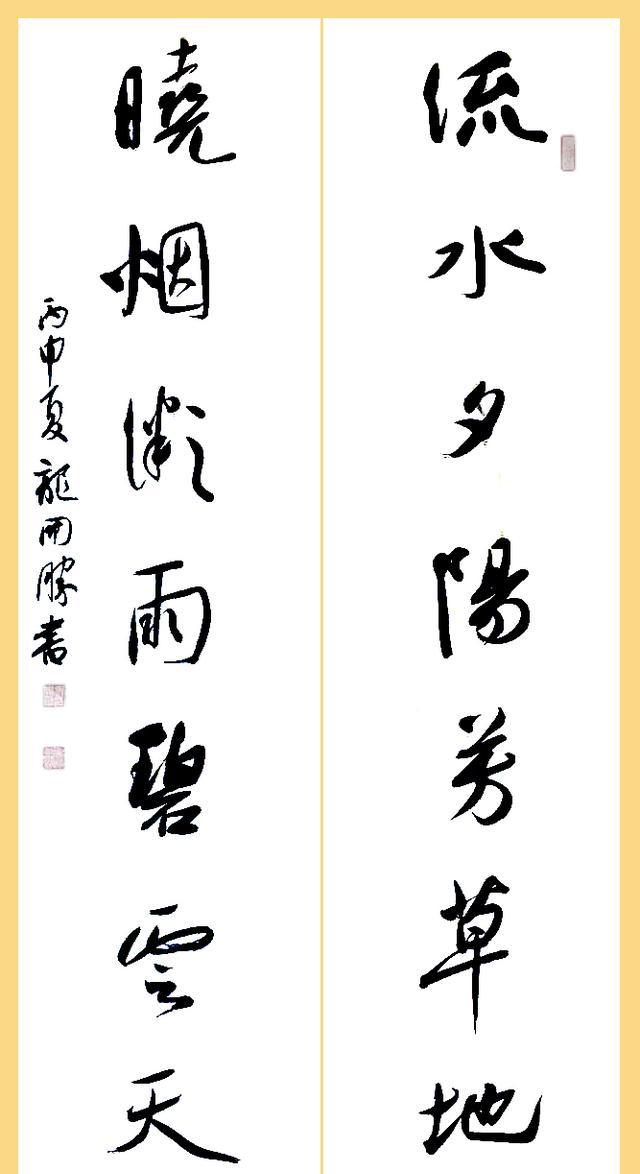 流水夕陽芳草地
曉烟微雨碧雲天
丙申夏龍開勝書